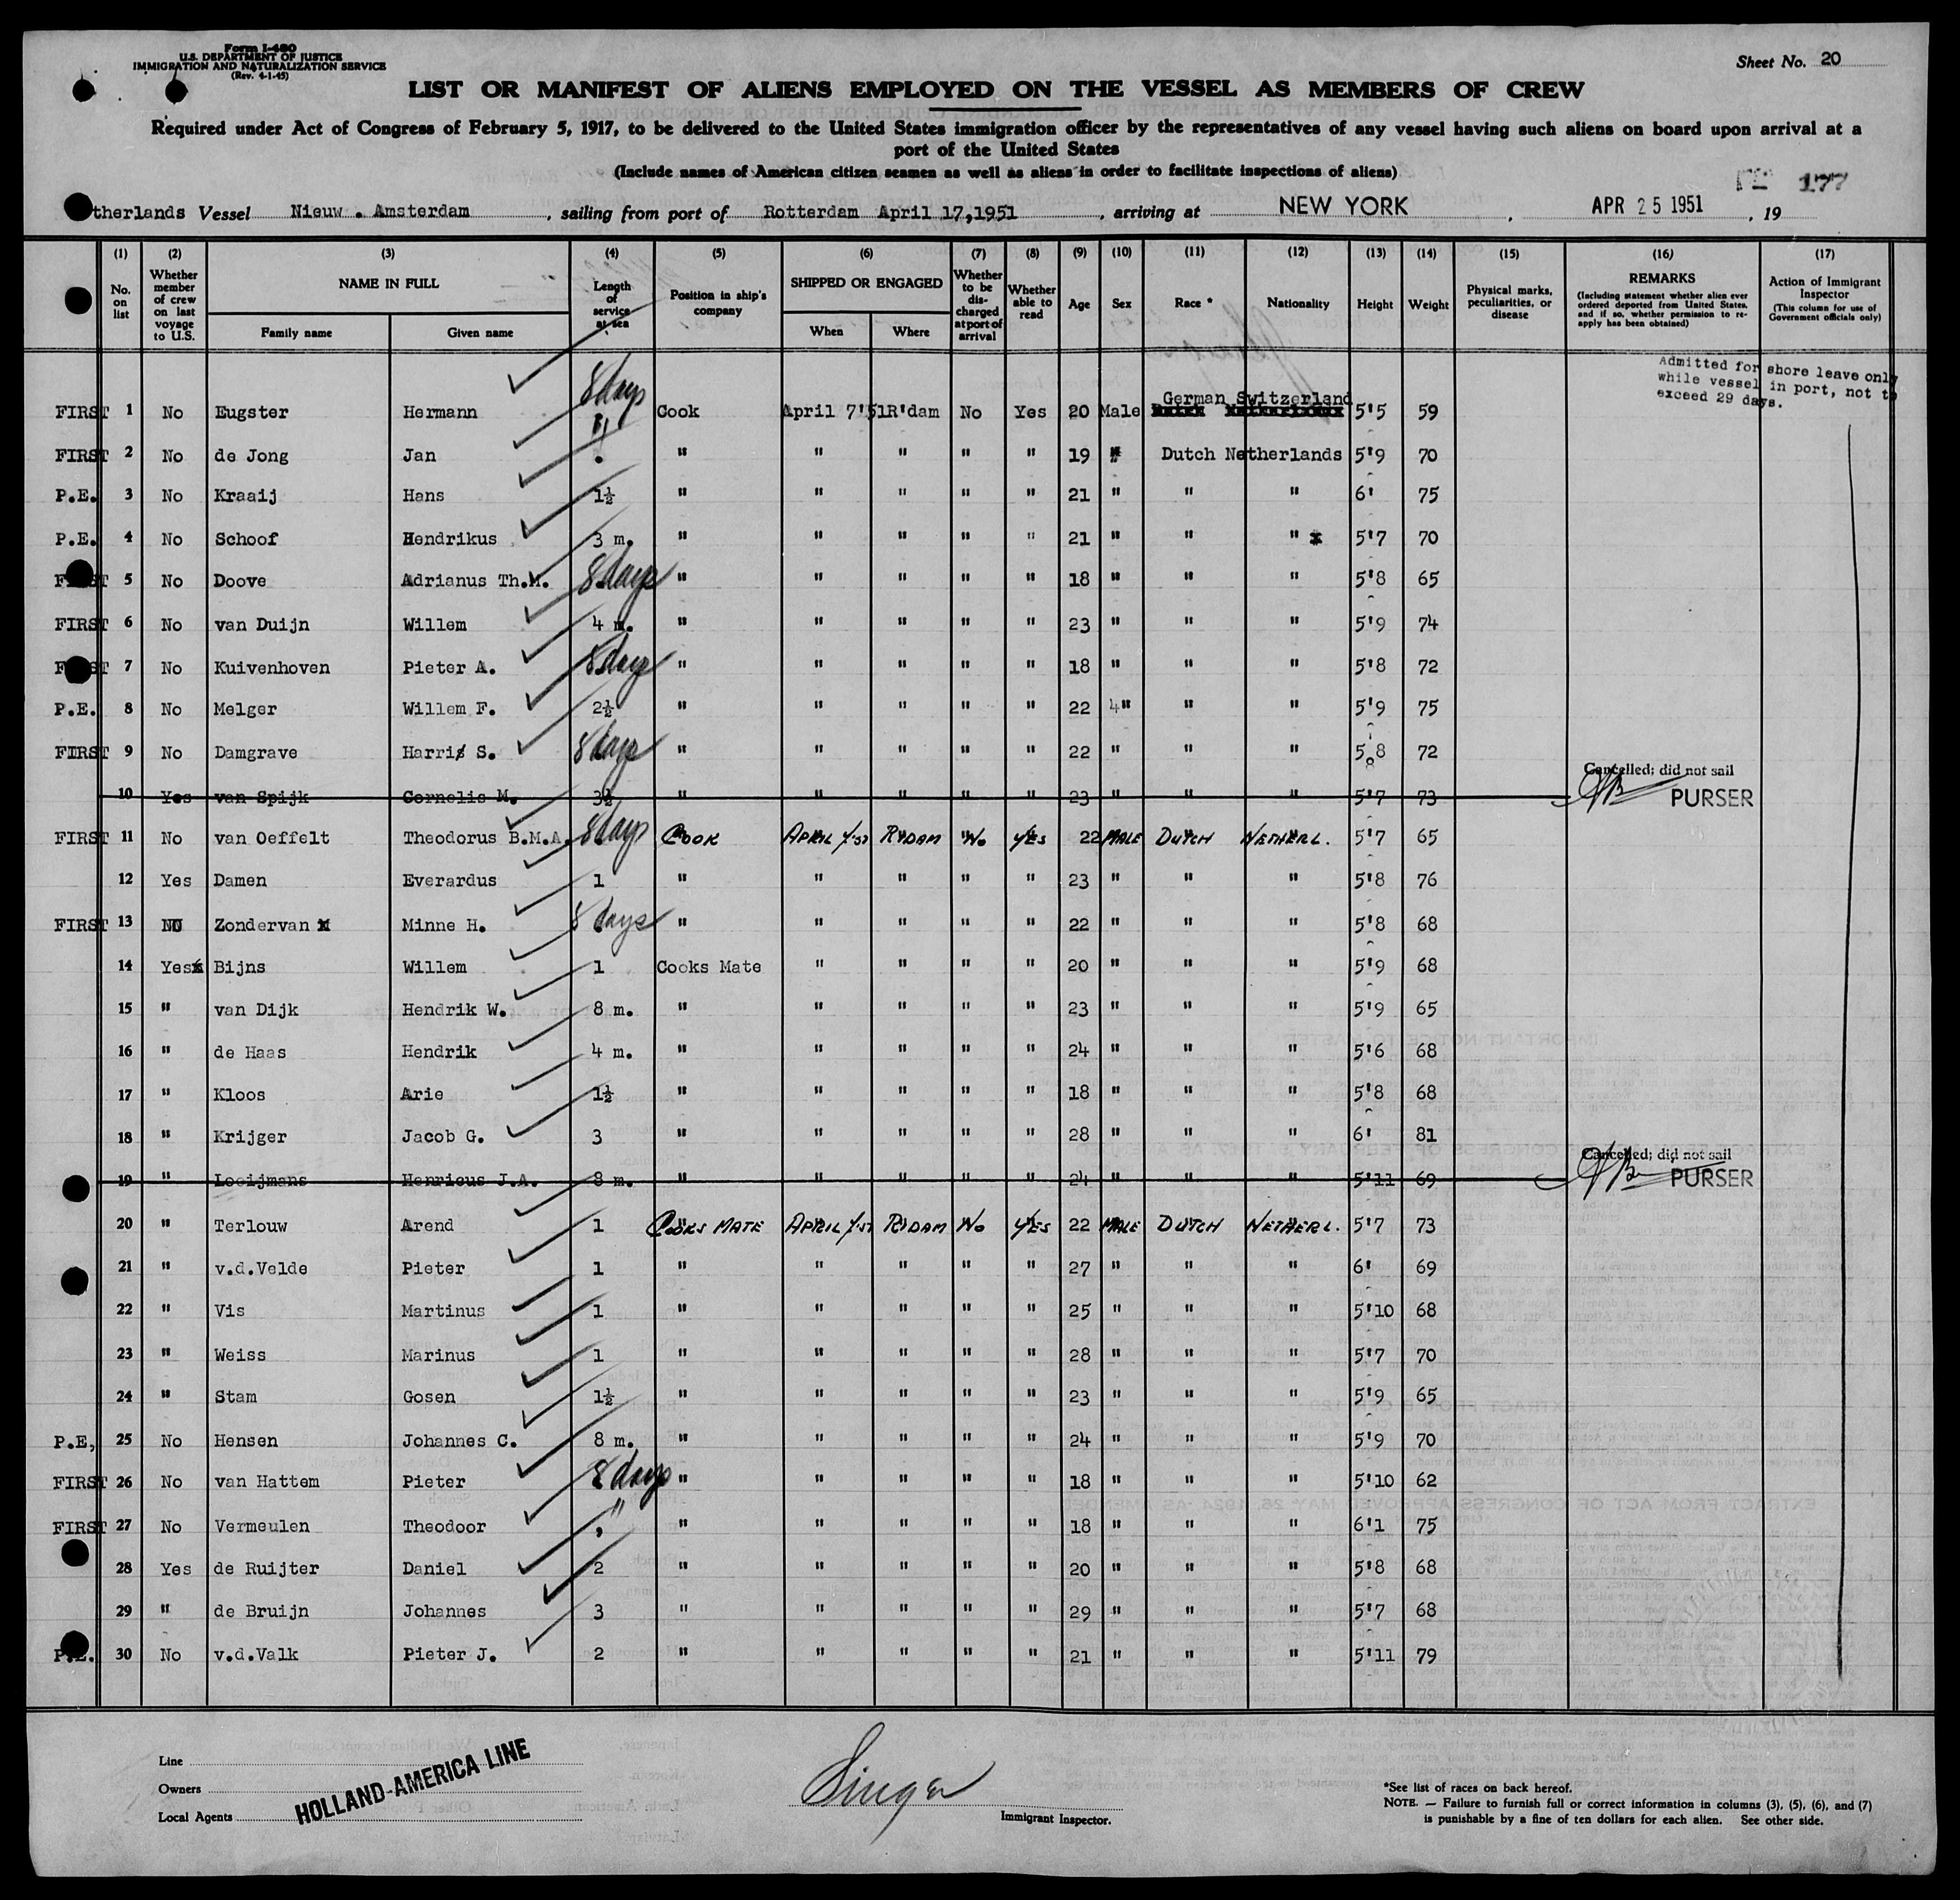 Form I-480
U.S. DEPARTMENT OF JUSTICE
IMMIGRATION AND NATURALIZATION SERVICE
(Rev. 4-1-45)
Sheet No. 20
LIST OR MANIFEST OF ALIENS EMPLOYED ON THE VESSEL AS MEMBERS OF CREW
Required under Act of Congress of February 5, 1917, to be delivered to the United States immigration officer by the representatives of any vessel having such aliens on board upon arrival at a
port of the United States
(Include names of American citizen seamen as well as aliens in order to facilitate inspections of aliens)
177
therlands Vessel Nieuw . Amsterdam , sailing from port of Rotterdam April 17,1951 , arriving at NEW YORK , APR 25 1951 , 19
(1) (2) (3) (4) (5) (6) (7) (8) (9) (10) (11) (12) (13) (14) (15) (16) (17)
No. on list
Whether member of crew on last voyage to U.S.
NAME IN FULL
Family name Given name
Length of service at sea
Position in ship's company
SHIPPED OR ENGAGED
When Where
Whether to be discharged at port of arrival
Whether able to read
Age
Sex
Race *
Nationality
Height
Weight
Physical marks, peculiarities, or disease
REMARKS
(Including statement whether alien ever ordered deported from United States, and if so, whether permission to re-apply has been obtained)
Action of Immigrant Inspector
(This column for use of Government officials only)
Admitted for shore leave only
while vessel in port, not to
exceed 29 days.
FIRST 1 No Eugster Hermann 8 days Cook April 7'51 R'dam No Yes 20 Male German Switzerland 5'5 59
FIRST 2 No de Jong Jan " " " " " 19 " Dutch Netherlands 5'9 70
P.E. 3 No Kraaij Hans 1½ " " " " " 21 " " " 6' 75
P.E. 4 No Schoof Hendrikus 3 m. " " " " " 21 " " " 5'7 70
FIRST 5 No Doove Adrianus Th.M. 8 days " " " " " 18 " " " 5'8 65
FIRST 6 No van Duijn Willem 4 m. " " " " " 23 " " " 5'9 74
FIRST 7 No Kuivenhoven Pieter A. 8 days " " " " " 18 " " " 5'8 72
P.E. 8 No Melger Willem F. 2½ " " " " " 22 " " " 5'9 75
FIRST 9 No Damgrave Harris S. 8 days " " " " " 22 " " " 5'8 72
Cancelled; did not sail
10 Yes van Spijk Cornelis M. 3½ " " " " " 23 " " " 5'7 73 PURSER
FIRST 11 No van Oeffelt Theodorus B.M.A. 8 days COOK APRIL 7/51 R'DAM No YES 22 MALE DUTCH NETHERL. 5'7 65
12 Yes Damen Everardus 1 " " " " " 23 " " " 5'8 76
FIRST 13 NO Zondervan Minne H. 8 days " " " " " 22 " " " 5'8 68
14 Yes Bijns Willem 1 Cooks Mate " " " " 20 " " " 5'9 68
15 " van Dijk Hendrik W. 8 m. " " " " " 23 " " " 5'9 65
16 " de Haas Hendrik 4 m. " " " " " 24 " " " 5'6 68
17 " Kloos Arie 1½ " " " " " 18 " " " 5'8 68
18 " Krijger Jacob G. 3 " " " " " 28 " " " 6' 81
Cancelled; did not sail
19 " Looijmans Henricus J.A. 8 m. " " " " " 24 " " " 5'11 69 PURSER
20 " Terlouw Arend 1 COOKS MATE APRIL 7/51 R'DAM No YES 22 MALE DUTCH NETHERL. 5'7 73
21 " v.d.Velde Pieter 1 " " " " " 27 " " " 6' 69
22 " Vis Martinus 1 " " " " " 25 " " " 5'10 68
23 " Weiss Marinus 1 " " " " " 28 " " " 5'7 70
24 " Stam Gosen 1½ " " " " " 23 " " " 5'9 65
P.E, 25 No Hensen Johannes C. 8 m. " " " " " 24 " " " 5'9 70
FIRST 26 No van Hattem Pieter 8 days " " " " " 18 " " " 5'10 62
FIRST 27 No Vermeulen Theodoor " " " " " " 18 " " " 6'1 75
28 Yes de Ruijter Daniel 2 " " " " " 20 " " " 5'8 68
29 " de Bruijn Johannes 3 " " " " " 29 " " " 5'7 68
P.E. 30 No v.d.Valk Pieter J. 2 " " " " " 21 " " " 5'11 79
Line
Owners
Local Agents
HOLLAND-AMERICA LINE
Singer
Immigrant Inspector.
*See list of races on back hereof.
NOTE. — Failure to furnish full or correct information in columns (3), (5), (6), and (7)
is punishable by a fine of ten dollars for each alien. See other side.